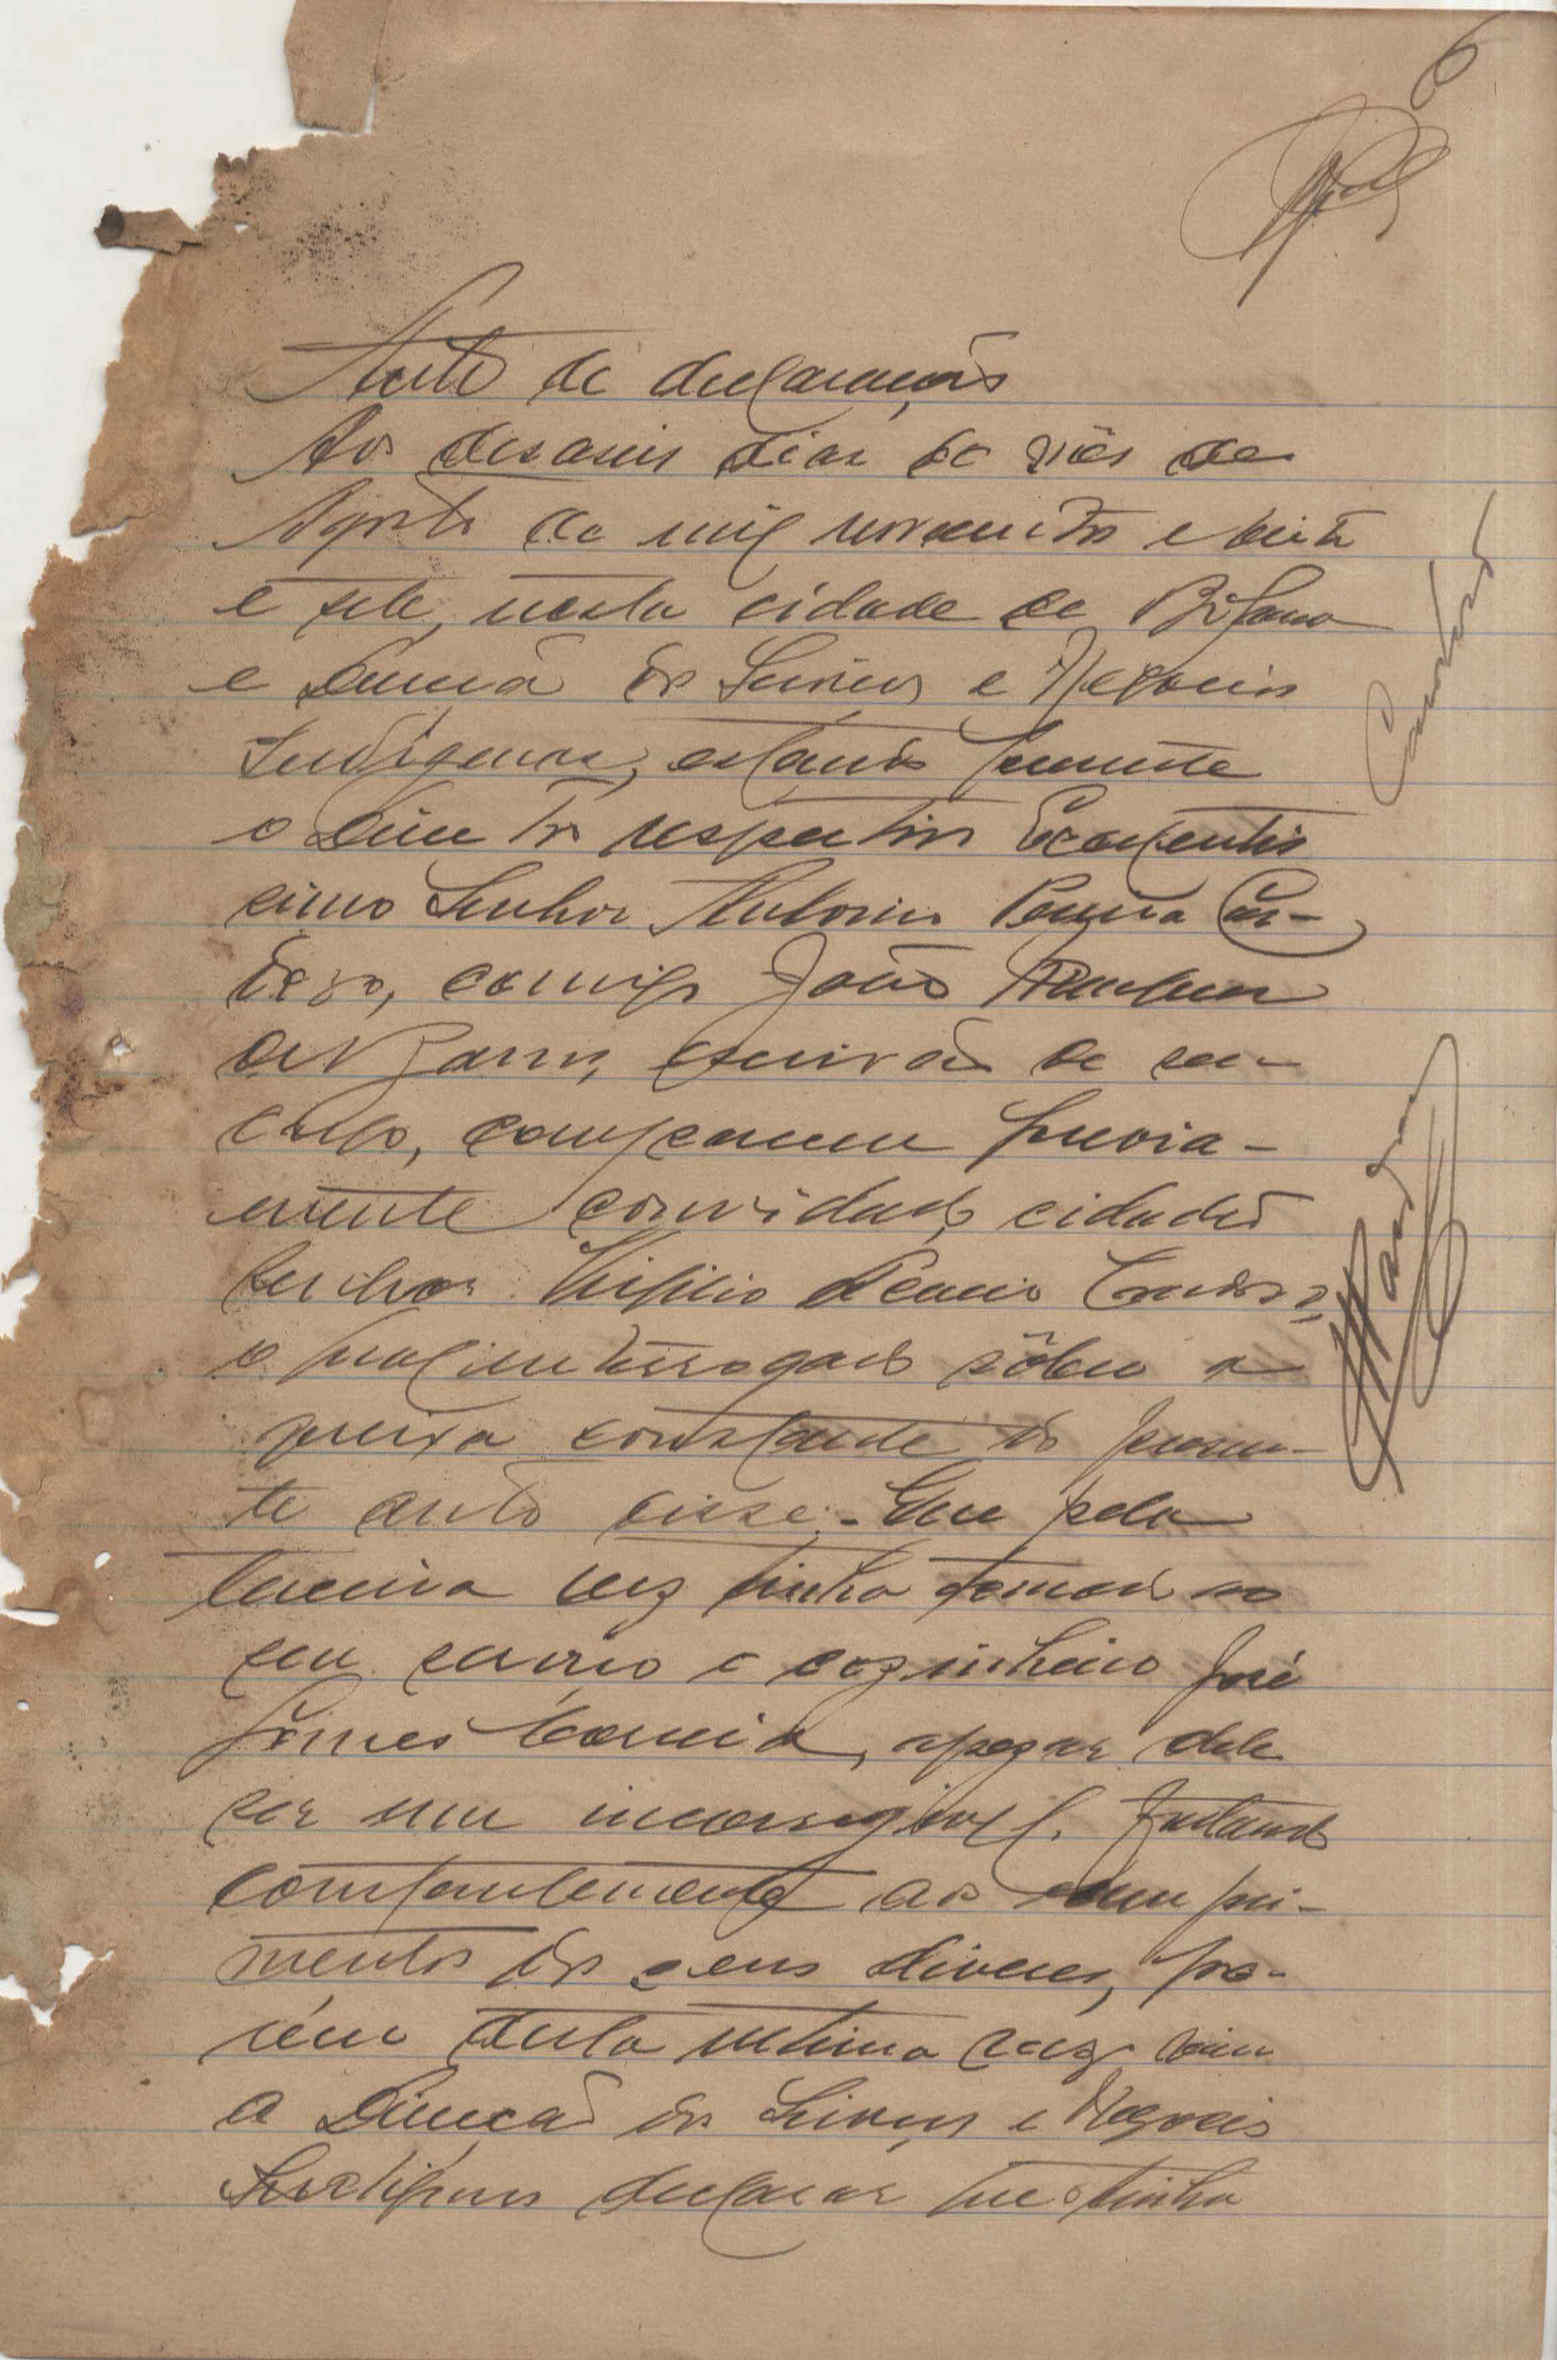 6
Auto de declarações
Aos desaseis dias do mês de
Agosto de mil novecentos e vinte
e sete, nesta cidade de Bolama
e Direcção dos Serviços e Negocios
Indigenas, estando presente
o Director respectivo Excelentis
simo Senhor Antonio Pereira Car-
doso, comigo João
de Barros, escrivão de seu
cargo, compareceu previa-
mente convidado, cidadão
senhor Cardoso,
e interrogado sôbre a
queixa constante do presen-
te auto disse: - Que pela
terceira vez tinha tomado ao
seu serviço o cozinheiro José
Gomes Correia, apezar dele
ser um incorregivel. Faltando
constantemente ao cumpri-
mento dos seus deveres, po-
rém desta ultima vez veiu
a Direcção dos Serviços e Negocios
Indigenas declarar que o tinha
Cardoso